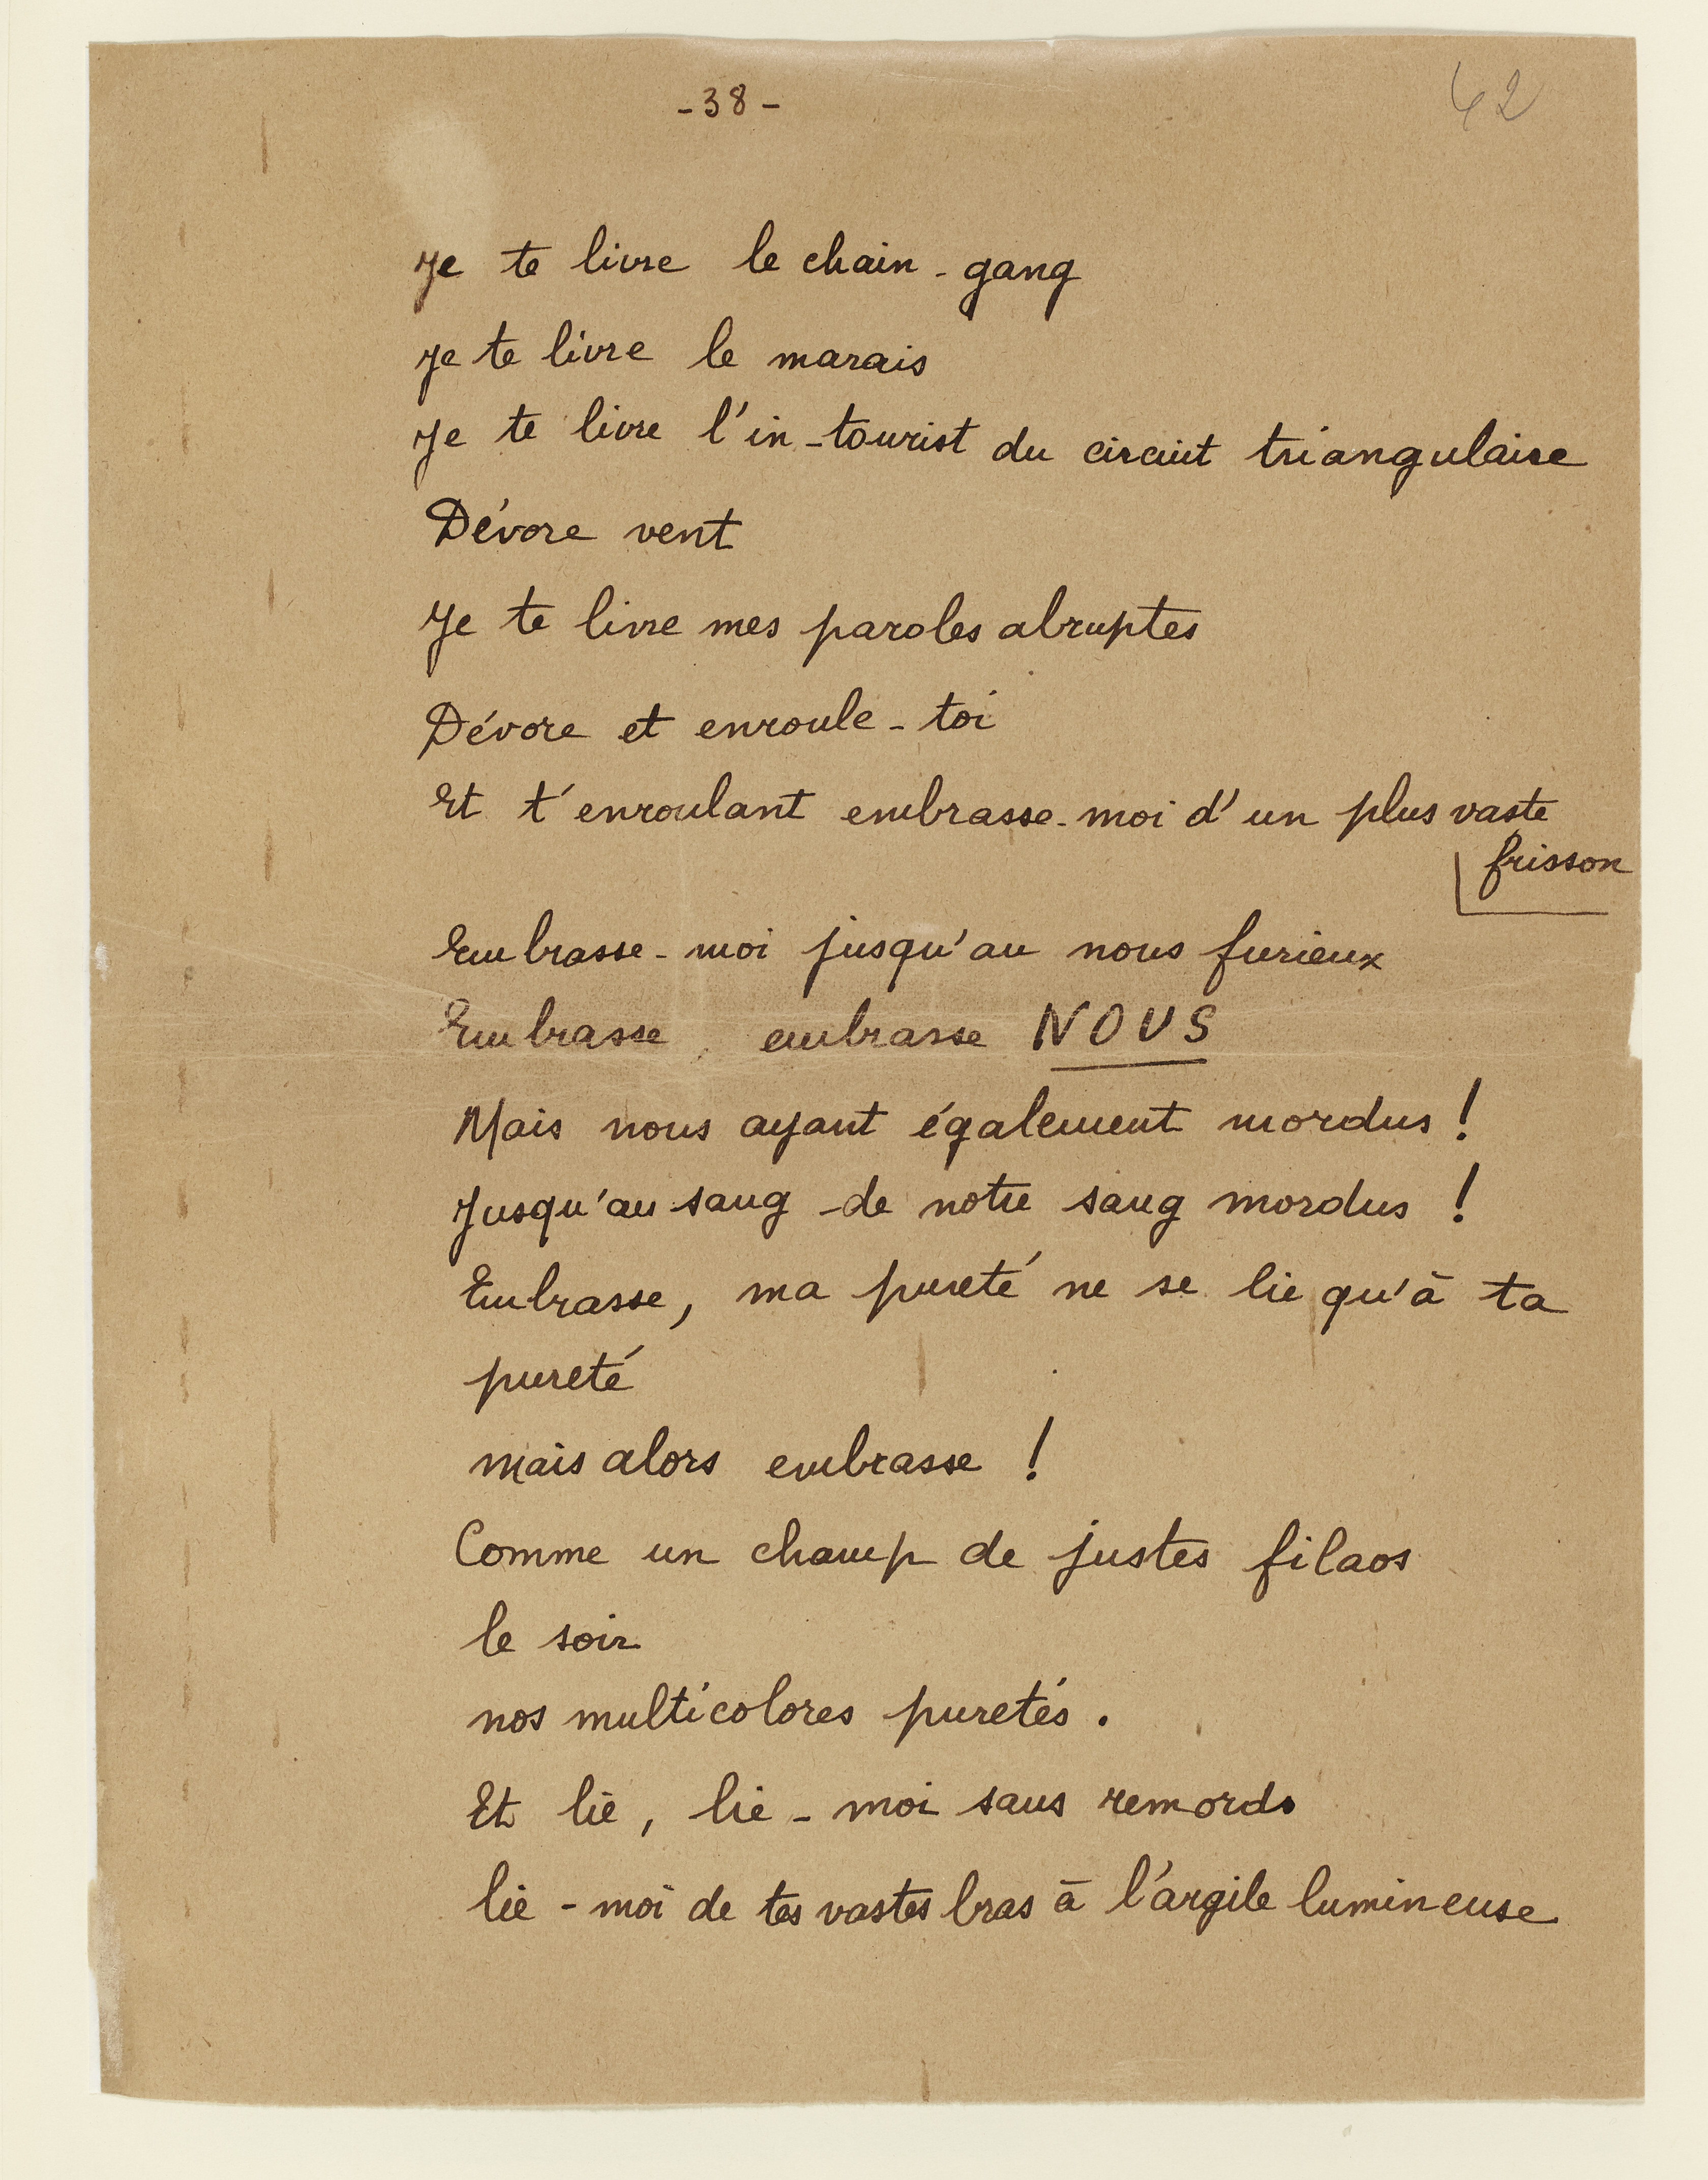 - 38 -
42
Je te livre le chain-gang
Je te livre le marais
Je te livre l'in-tourist du circuit triangulaire
Dévore vent
Je te livre mes paroles abruptes
Dévore et enroule-toi
Et t'enroulant embrasse-moi d'un plus vaste
frisson
Embrasse-moi jusqu'au nous furieux
Embrasse, embrasse NOUS
Mais nous ayant également mordus !
Jusqu'au sang de notre sang mordus !
Embrasse, ma pureté ne se lie qu'à ta
pureté
mais alors embrasse !
Comme un champ de justes filaos
le soir
nos multicolores puretés.
Et lie, lie-moi sans remords
lie-moi de tes vastes bras à l'argile lumineuse